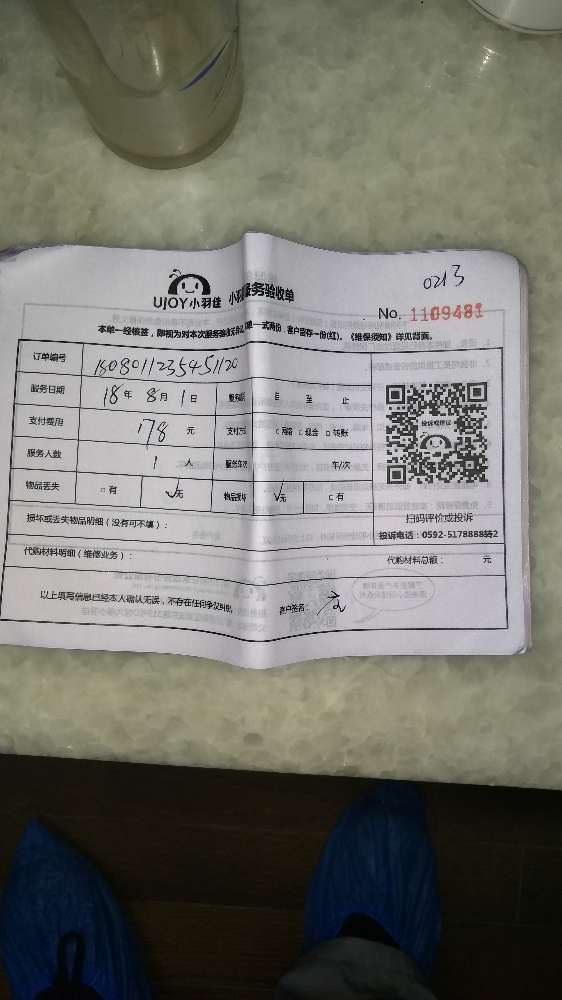 0213
UJOY小羽佳 小羽佳服务验收单
No. 1109481
本单一经核签，即视为对本次服务验收无异议，单一式两份，客户留存一份(红)。《维保须知》详见背面。
订单编号 1808011235451120
服务日期 18年 8月 1日 服务时间 自 至 止
支付费用 178 元 支付方式 □网络 □现金 □转账
服务人数 1 人 服务车次 车/次
物品丢失 □有 √无 物品损坏 √无 □有
投诉或建议
扫码评价或投诉
投诉电话：0592-5178888转2
损坏或丢失物品明细（没有可不填）：
代购材料明细（维修业务）： 代购材料总额： 元
以上填写信息已经本人确认无误，不存在任何争议纠纷 客户签名：